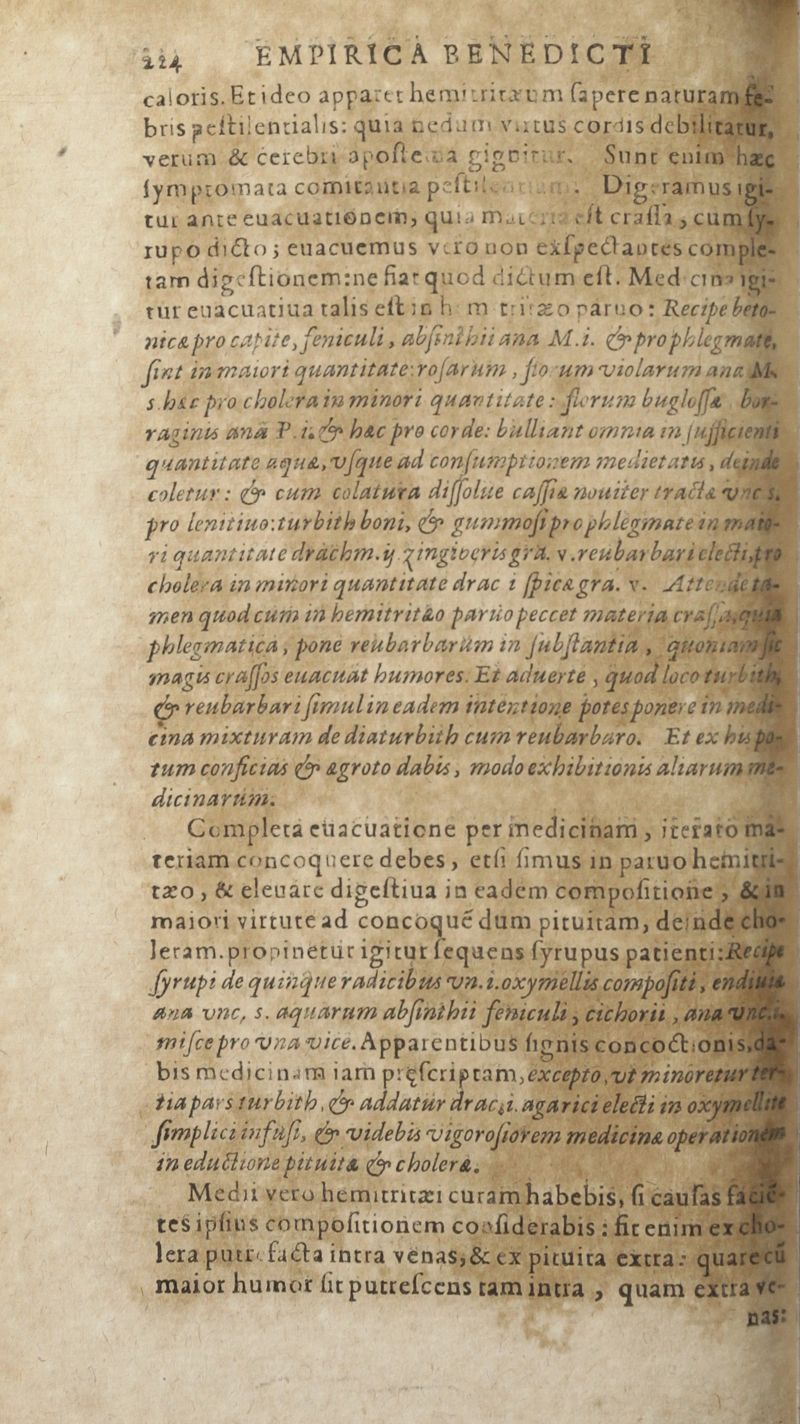 224 EMPIRICA BENEDICTI
caloris. Et ideo apparet hemitritæum ſapere naturam fe-
bris peſtilentialis: quia nedum virtus cordis debilitatur,
verum & cerebri apoſtema gignitur. Sunt enim hæc
ſymptomata comitantia peſtil. Digeramus igi-
tur ante euacuationem, quia materia eſt craſſa, cum ſy-
rupo dicto; euacuemus vero non exſpectantes comple-
tam digeſtionem: ne fiat quod dictum eſt. Medcina igi-
tur euacuatiua talis eſt in hem tritæo paruo: Recipe beto-
nicæ pro capite, feniculi, abſinthii ana M.i. & pro phlegmate,
ſint in maiori quantitate: roſarum, florum violarum ana M.
s. hæc pro cholera in minori quantitate: florum bugloſſæ bor-
raginis ana P.i. & hæc pro corde: bulliant omnia in ſufficienti
quantitate aquæ, vſque ad conſumptionem medietatis, deinde
coletur: & cum colatura diſſolue caſſiæ nouiter tractæ vnc s.
pro lenitiuo: turbith boni, & gummoſi pro phlegmate in maio-
ri quantitate drachm.ij zingiberis gra. v. reubarbari electi, pro
cholera in minori quantitate drac i ſpicæ gra. v. Attende ta-
men quod cum in hemitritæo paruo peccet materia craſſa, quia
phlegmatica, pone reubarbarum in ſubſtantia, quoniam ſic
magis craſſos euacuat humores. Et aduerte, quod loco turbith,
& reubarbari ſimul in eadem intentione potes ponere in medi-
cina mixturam de diaturbith cum reubarbaro. Et ex his po-
tum conficias & ægroto dabis, modo exhibitionis aliarum me-
dicinarum.
Completa euacuatione per medicinam, iterato ma-
teriam concoquere debes, etſi ſimus in paruo hemitri-
tæo, & eleuare digeſtiua in eadem compoſitione, & in
maiori virtute ad concoquēdum pituitam, deinde cho-
leram. propinetur igitur ſequens ſyrupus patienti: Recipe
ſyrupi de quinque radicibus vn.i. oxymellis compoſiti, endiuiæ
ana vnc, s. aquarum abſinthii feniculi, cichorii, ana vnc.i.
miſce pro vna vice. Apparentibus ſignis concoctionis, da-
bis medicinam iam pręſcriptam, excepto, vt minoretur ter-
tia pars turbith, & addatur drac.i. agarici electi in oxymellite
ſimplici infuſi, & videbis vigoroſiorem medicinæ operationem
in eductione pituitæ & choleræ.
Medii vero hemitritæi curam habebis, ſi cauſas facie-
tes ipſius compoſitionem conſiderabis: fit enim ex cho-
lera putrefacta intra venas, & ex pituita extra: quare cū
maior humor ſit putreſcens tam intra, quam extra ve-
nas: